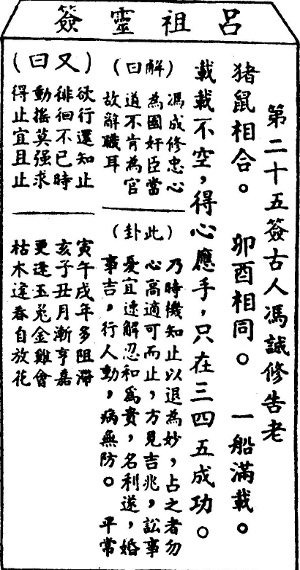 呂祖靈籤
第二十五簽古人馮誠修告老
猪鼠相合。 卯酉相同。 一船滿載。
載載不空，得心應手，只在三四五成功。
(解曰)
馮成修忠心
為國奸臣當
道不肯為官
故解職耳
(此卦)
乃時機知止以退為妙，占之者勿
心高適可而止，方見吉兆，訟事
憂宜速解忍和為貴，名利遂，婚
事吉，行人動，病無防。 平常
(又曰)
欲行還知止
徘徊不已時
動搖莫强求
得止宜且止
寅午戌年多阻滯
亥子丑月漸亨嘉
更逢玉兔金雞會
枯木逢春自放花